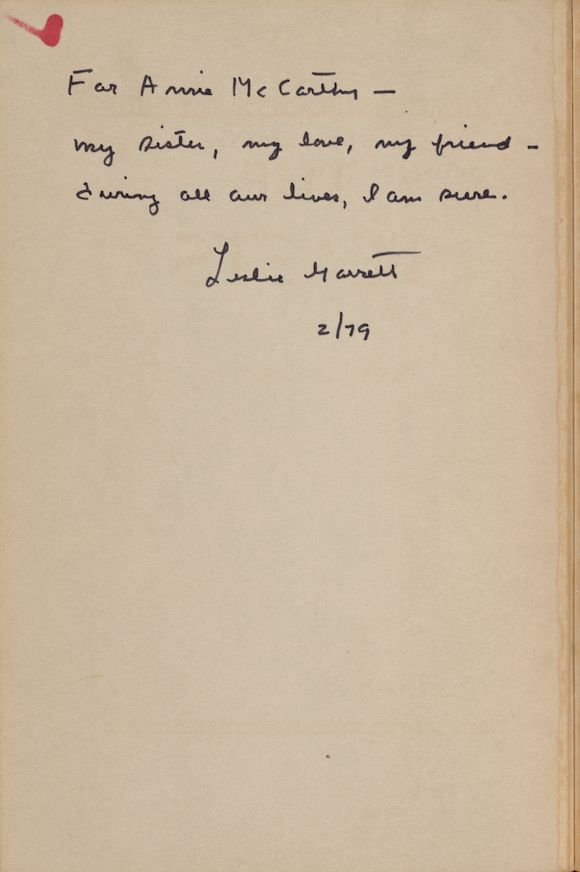 For Annie McCarthy —
my sister, my love, my friend –
during all our lives, I am sure.
Leslie Garrett
2/79